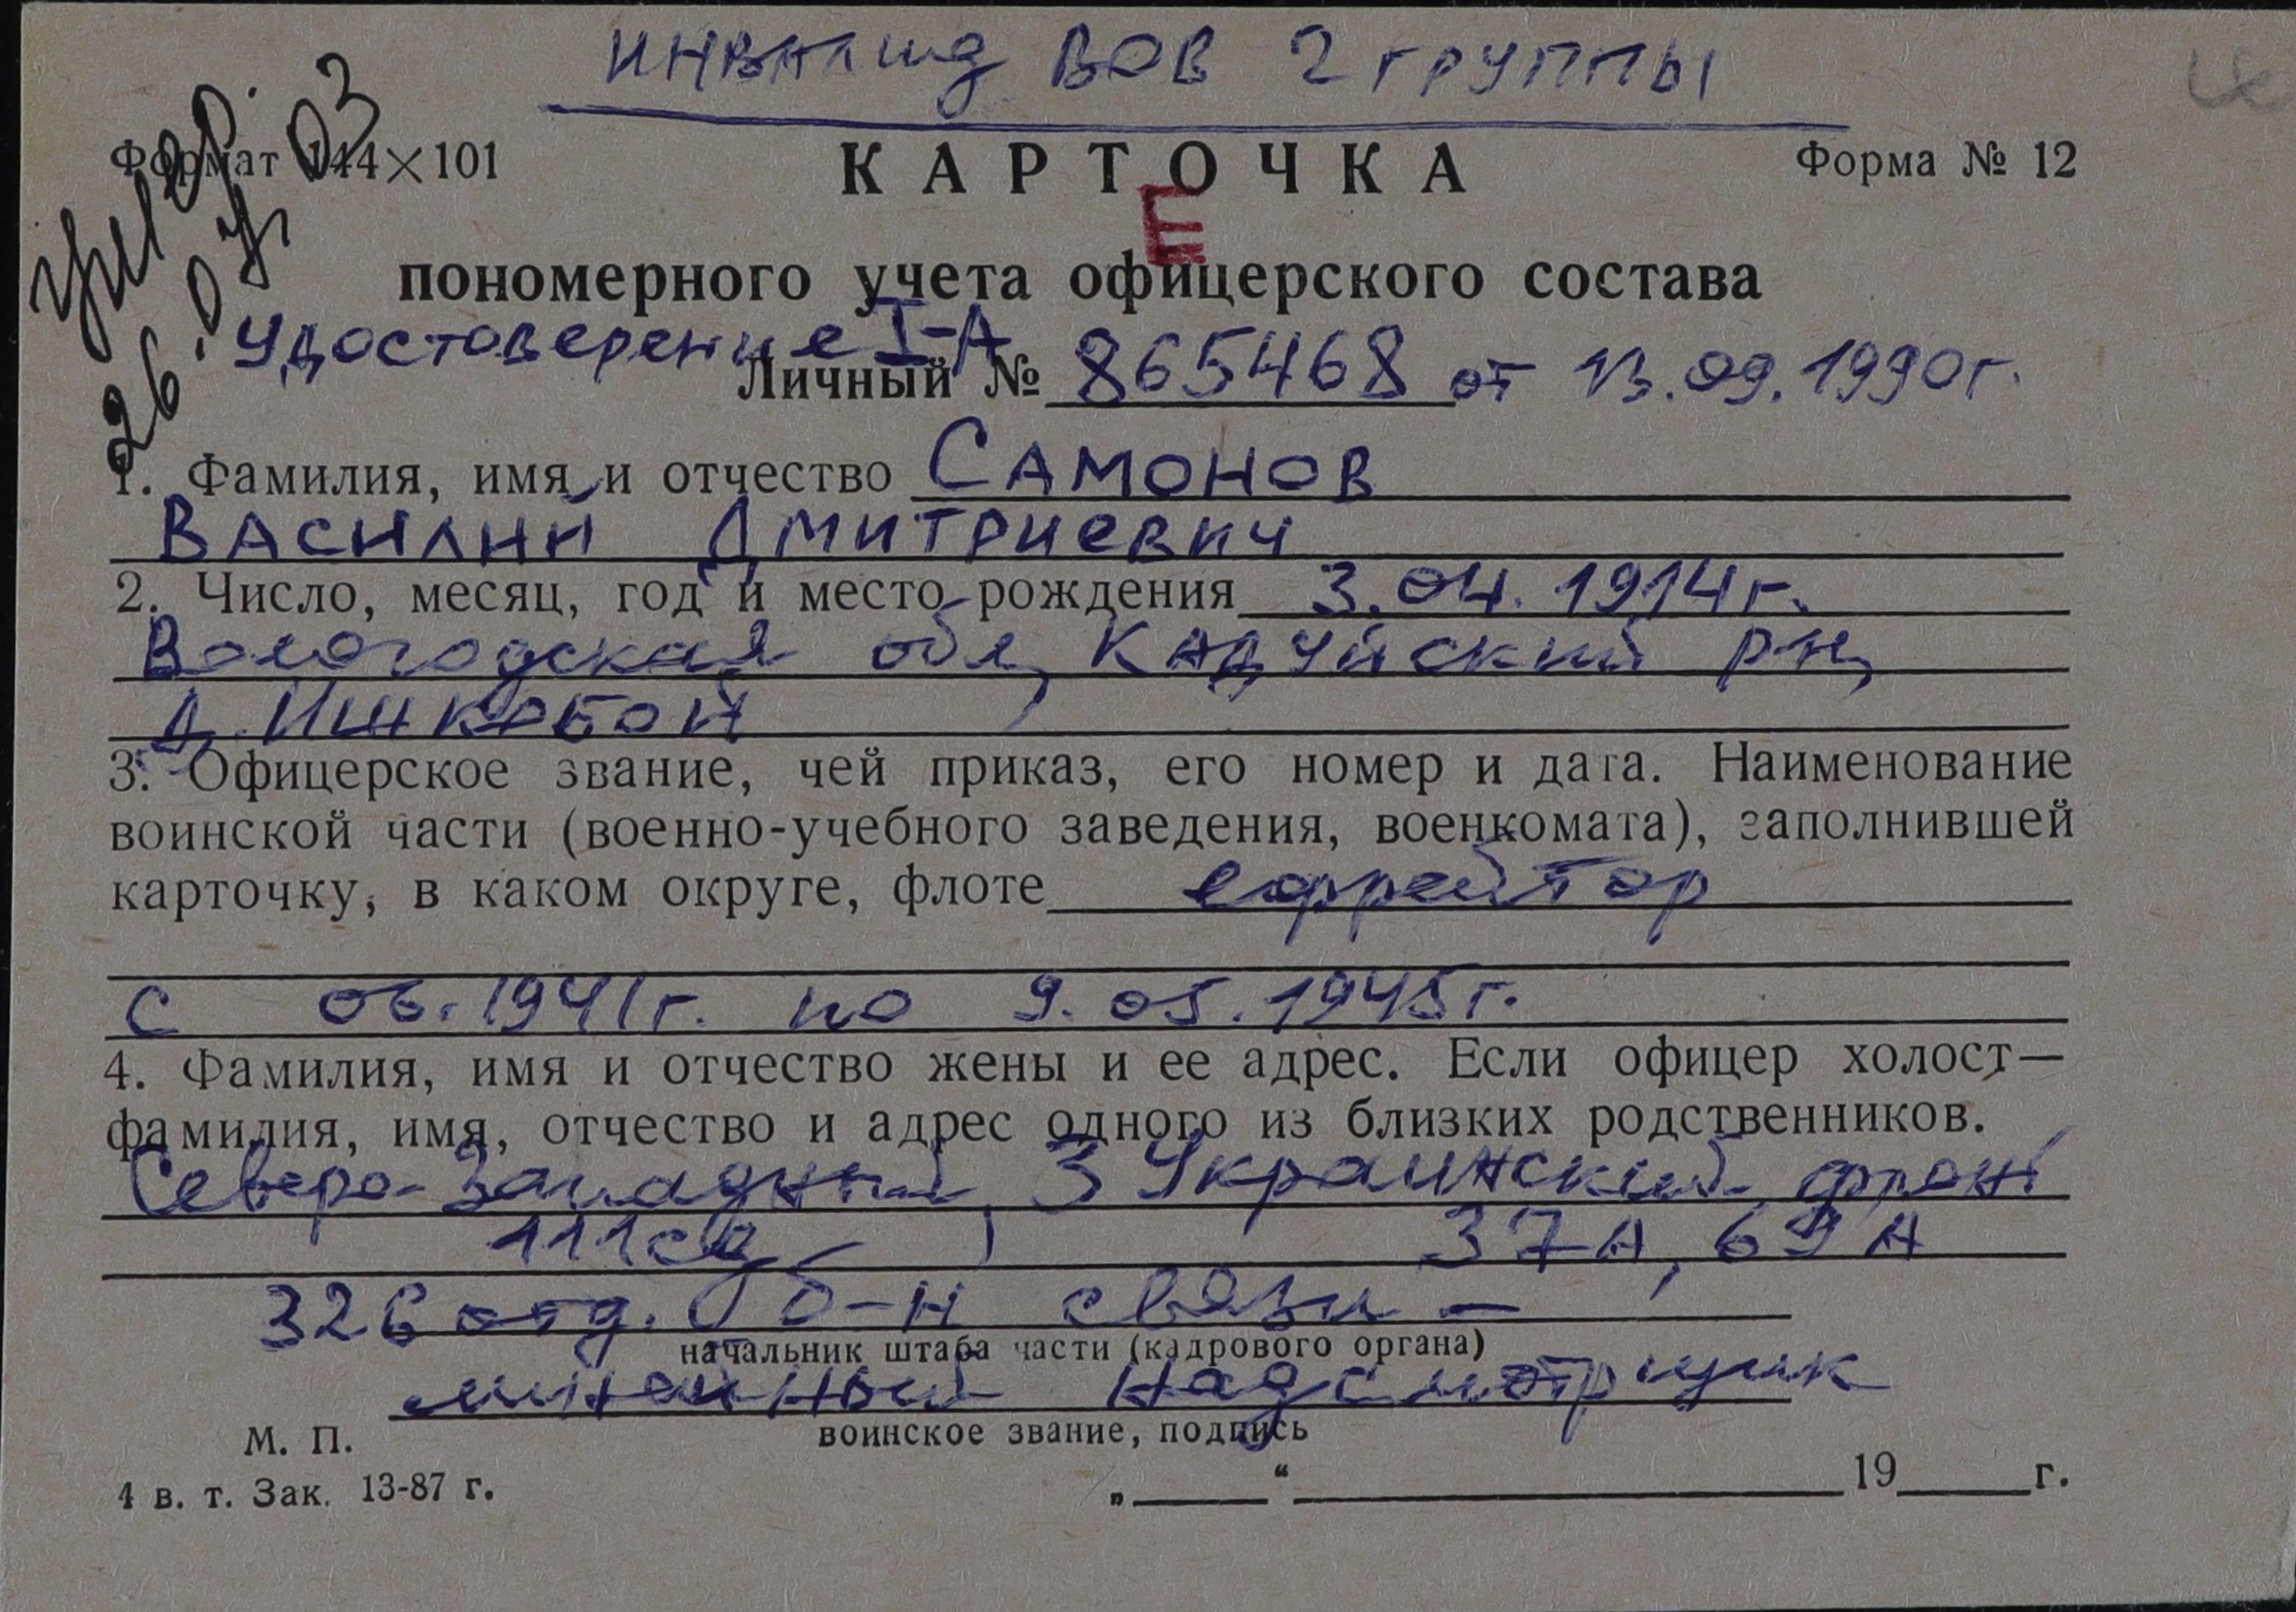 инвалид ВОВ 2 группы
умер.
26.04.03
Формат 144×101
Форма № 12
КАРТОЧКА
Е
пономерного учета офицерского состава
Удостоверение I-А
Личный № 865468 от 13.09.1990г.
1. Фамилия, имя и отчество Самонов
Василий Дмитриевич
2. Число, месяц, год и место рождения 3.04.1914г.
Вологодская обл, Кадуйский р-н,
д. Ишкобой
3. Офицерское звание, чей приказ, его номер и дата. Наименование
воинской части (военно-учебного заведения, военкомата), заполнившей
карточку, в каком округе, флоте ефрейтор
с 06.1941г. по 9.05.1945г.
4. Фамилия, имя и отчество жены и ее адрес. Если офицер холост—
фамилия, имя, отчество и адрес одного из близких родственников.
Северо-Западный, 3 Украинский фронт
111сд, 37А, 69А
326 отд. б-н связи –
начальник штаба части (кадрового органа)
линейный надсмотрщик
воинское звание, подпись
М. П.
„ “ 19 г.
4 в. т. Зак. 13-87 г.